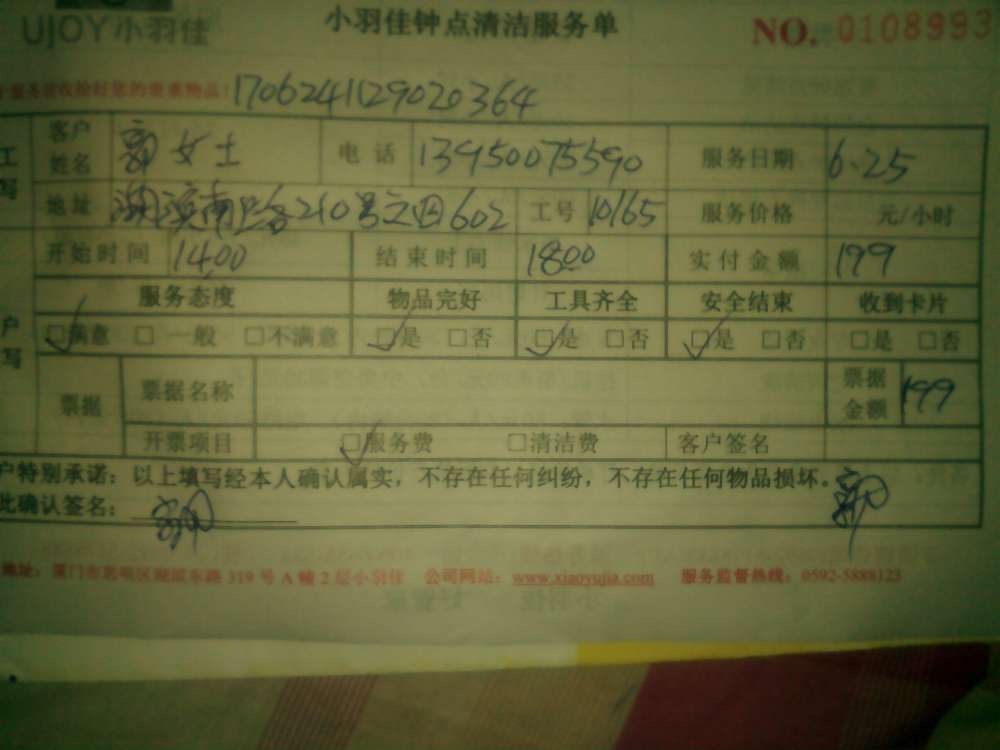 UJOY小羽佳 小羽佳钟点清洁服务单 NO. 0108993
170624129020364
客户姓名 郭女士 电话 13950075590 服务日期 6.25
地址 湖滨南路210号之四602 工号 10165 服务价格 元/小时
开始时间 14:00 结束时间 18:00 实付金额 199
服务态度 物品完好 工具齐全 安全结束 收到卡片
□满意 □一般 □不满意 □是 □否 □是 □否 □是 □否 □是 □否
票据 票据名称 票据金额 199
开票项目 □服务费 □清洁费 客户签名
户特别承诺:以上填写经本人确认属实,不存在任何纠纷,不存在任何物品损坏。
此确认签名:
地址:厦门市思明区 东路 319 号 A 幢 2 层小羽佳 公司网站:www.xiaoyujia.com 服务监督热线:0592-5888123